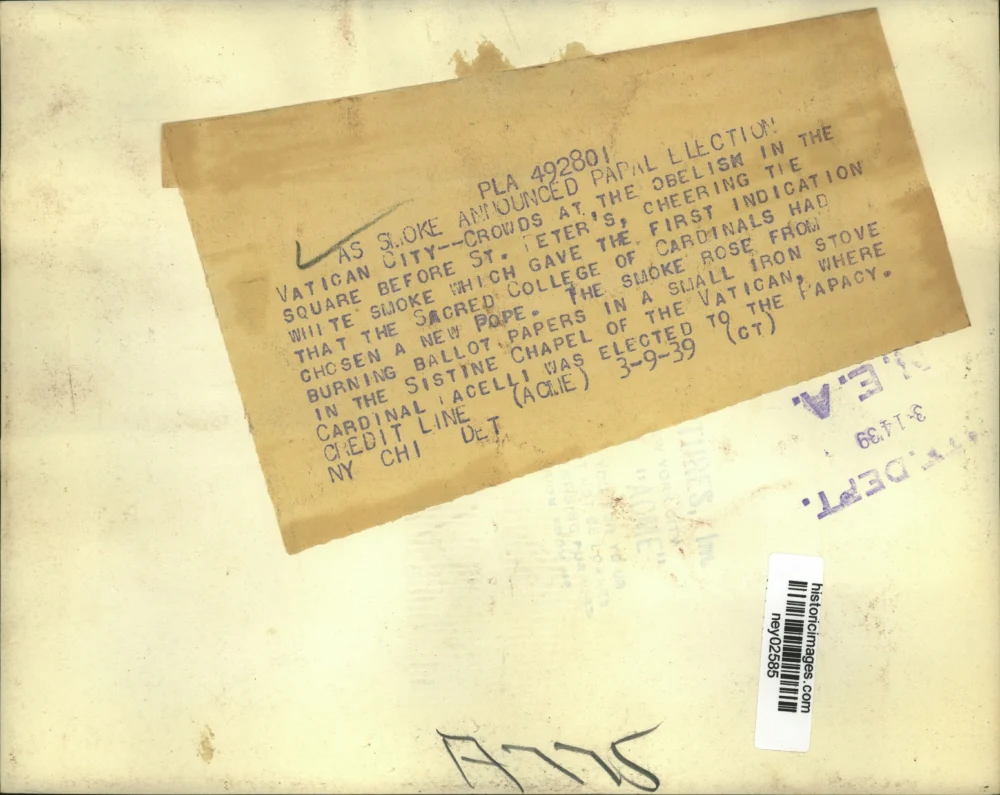 PLA 492801
AS SMOKE ANNOUNCED PAPAL ELECTION
VATICAN CITY--CROWDS AT THE OBELISM IN THE
SQUARE BEFORE ST. PETER'S, CHEERING THE
WHITE SMOKE WHICH GAVE THE FIRST INDICATION
THAT THE SACRED COLLEGE OF CARDINALS HAD
CHOSEN A NEW POPE. THE SMOKE ROSE FROM
BURNING BALLOT PAPERS IN A SMALL IRON STOVE
IN THE SISTINE CHAPEL OF THE VATICAN, WHERE
CARDINAL PACELLI WAS ELECTED TO THE PAPACY.
CREDIT LINE (ACME) 3-9-39 (CT)
NY CHI DET
N.E.A.
3-14-39
DEPT.
"ACME"
historicimages.com
ney02585